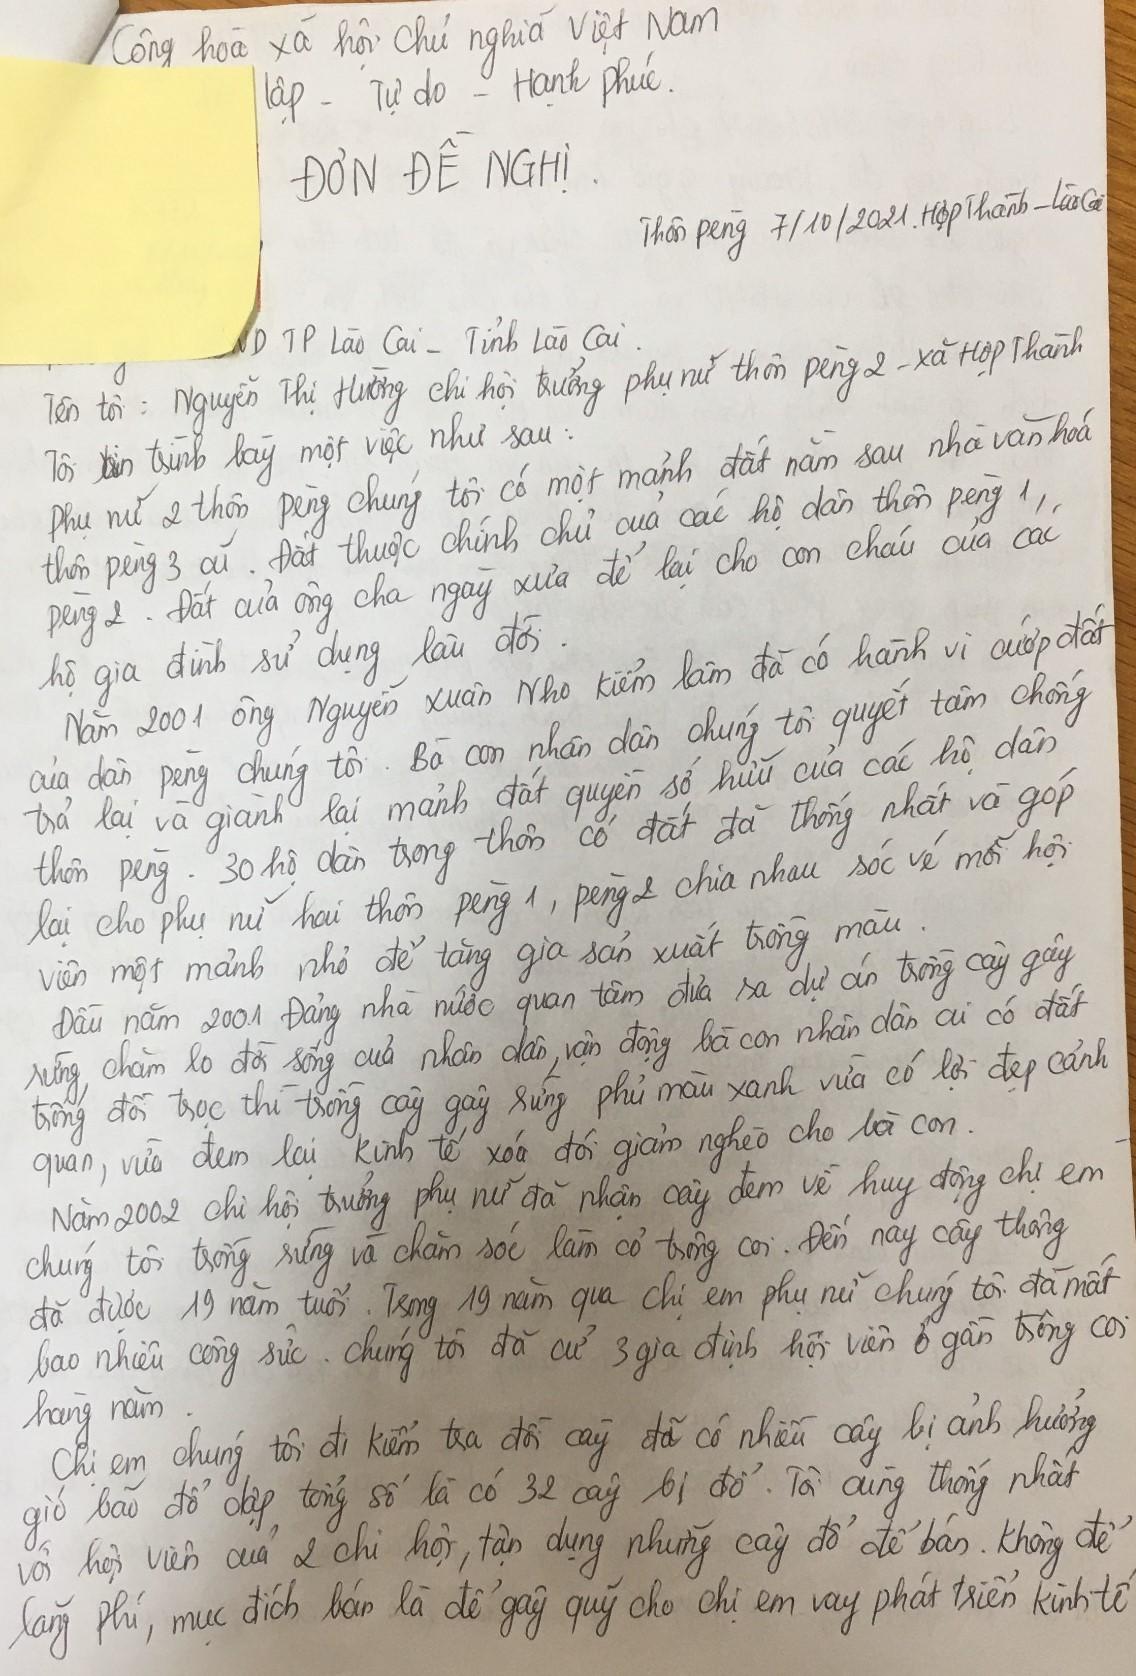 Công hoà xã hội chủ nghĩa Việt Nam
lập - Tự do - Hạnh phúc.
ĐƠN ĐỀ NGHỊ.
Thôn peng 7/10/2021. Hợp Thành - Lào Cai
ND TP Lào Cai - Tỉnh Lào Cai.
Tên tôi: Nguyễn Thị Hường chi hội trưởng phụ nữ thôn peng 2 - xã Hợp Thành
Tôi xin trình bày một việc như sau:
phụ nữ 2 thôn peng chúng tôi có một mảnh đất nằm sau nhà văn hoá
thôn peng 3 cũ. Đất thuộc chính chủ của các hộ dân thôn peng 1,
peng 2. Đất của ông cha ngày xưa để lại cho con cháu của các
hộ gia đình sử dụng lâu đời.
Năm 2001 ông Nguyễn xuân Nho kiểm lâm đã có hành vi cướp đất
của dân peng chúng tôi. Bà con nhân dân chúng tôi quyết tâm chống
trả lại và giành lại mảnh đất quyền sở hữu của các hộ dân
thôn peng. 30 hộ dân trong thôn có đất đã thống nhất và góp
lại cho phụ nữ hai thôn peng 1, peng 2 chia nhau sóc vé mỗi hội
viên một mảnh nhỏ để tăng gia sản xuất trồng màu.
Đầu năm 2001 Đảng nhà nước quan tâm đưa ra dự án trồng cây gây
rừng, chăm lo đời sống của nhân dân, vận động bà con nhân dân ai có đất
trống đồi trọc thì trồng cây gây rừng phủ màu xanh vừa có lợi đẹp cảnh
quan, vừa đem lại kinh tế xóa đói giảm nghèo cho bà con.
Năm 2002 chi hội trưởng phụ nữ đã nhận cây đem về huy động chị em
chúng tôi trồng rừng và chăm sóc làm cỏ trông coi. Đến nay cây thông
đã được 19 năm tuổi. Trong 19 năm qua chị em phụ nữ chúng tôi đã mất
bao nhiêu công sức. chúng tôi đã cử 3 gia đình hội viên ở gần trông coi
hàng năm.
Chị em chúng tôi đi kiểm tra đồi cây đã có nhiều cây bị ảnh hưởng
gió bão đổ dập tổng số là có 32 cây bị đổ. Tôi cùng thống nhất
với hội viên của 2 chi hội, tận dụng những cây đổ để bán. Không để
lãng phí, mục đích bán là để gây quỹ cho chị em vay phát triển kinh tế